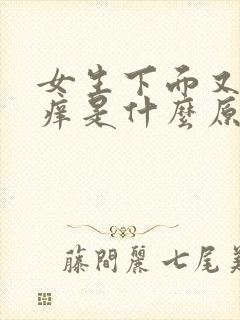 女生下而又
痒是什麼原
藤間麗 七尾美